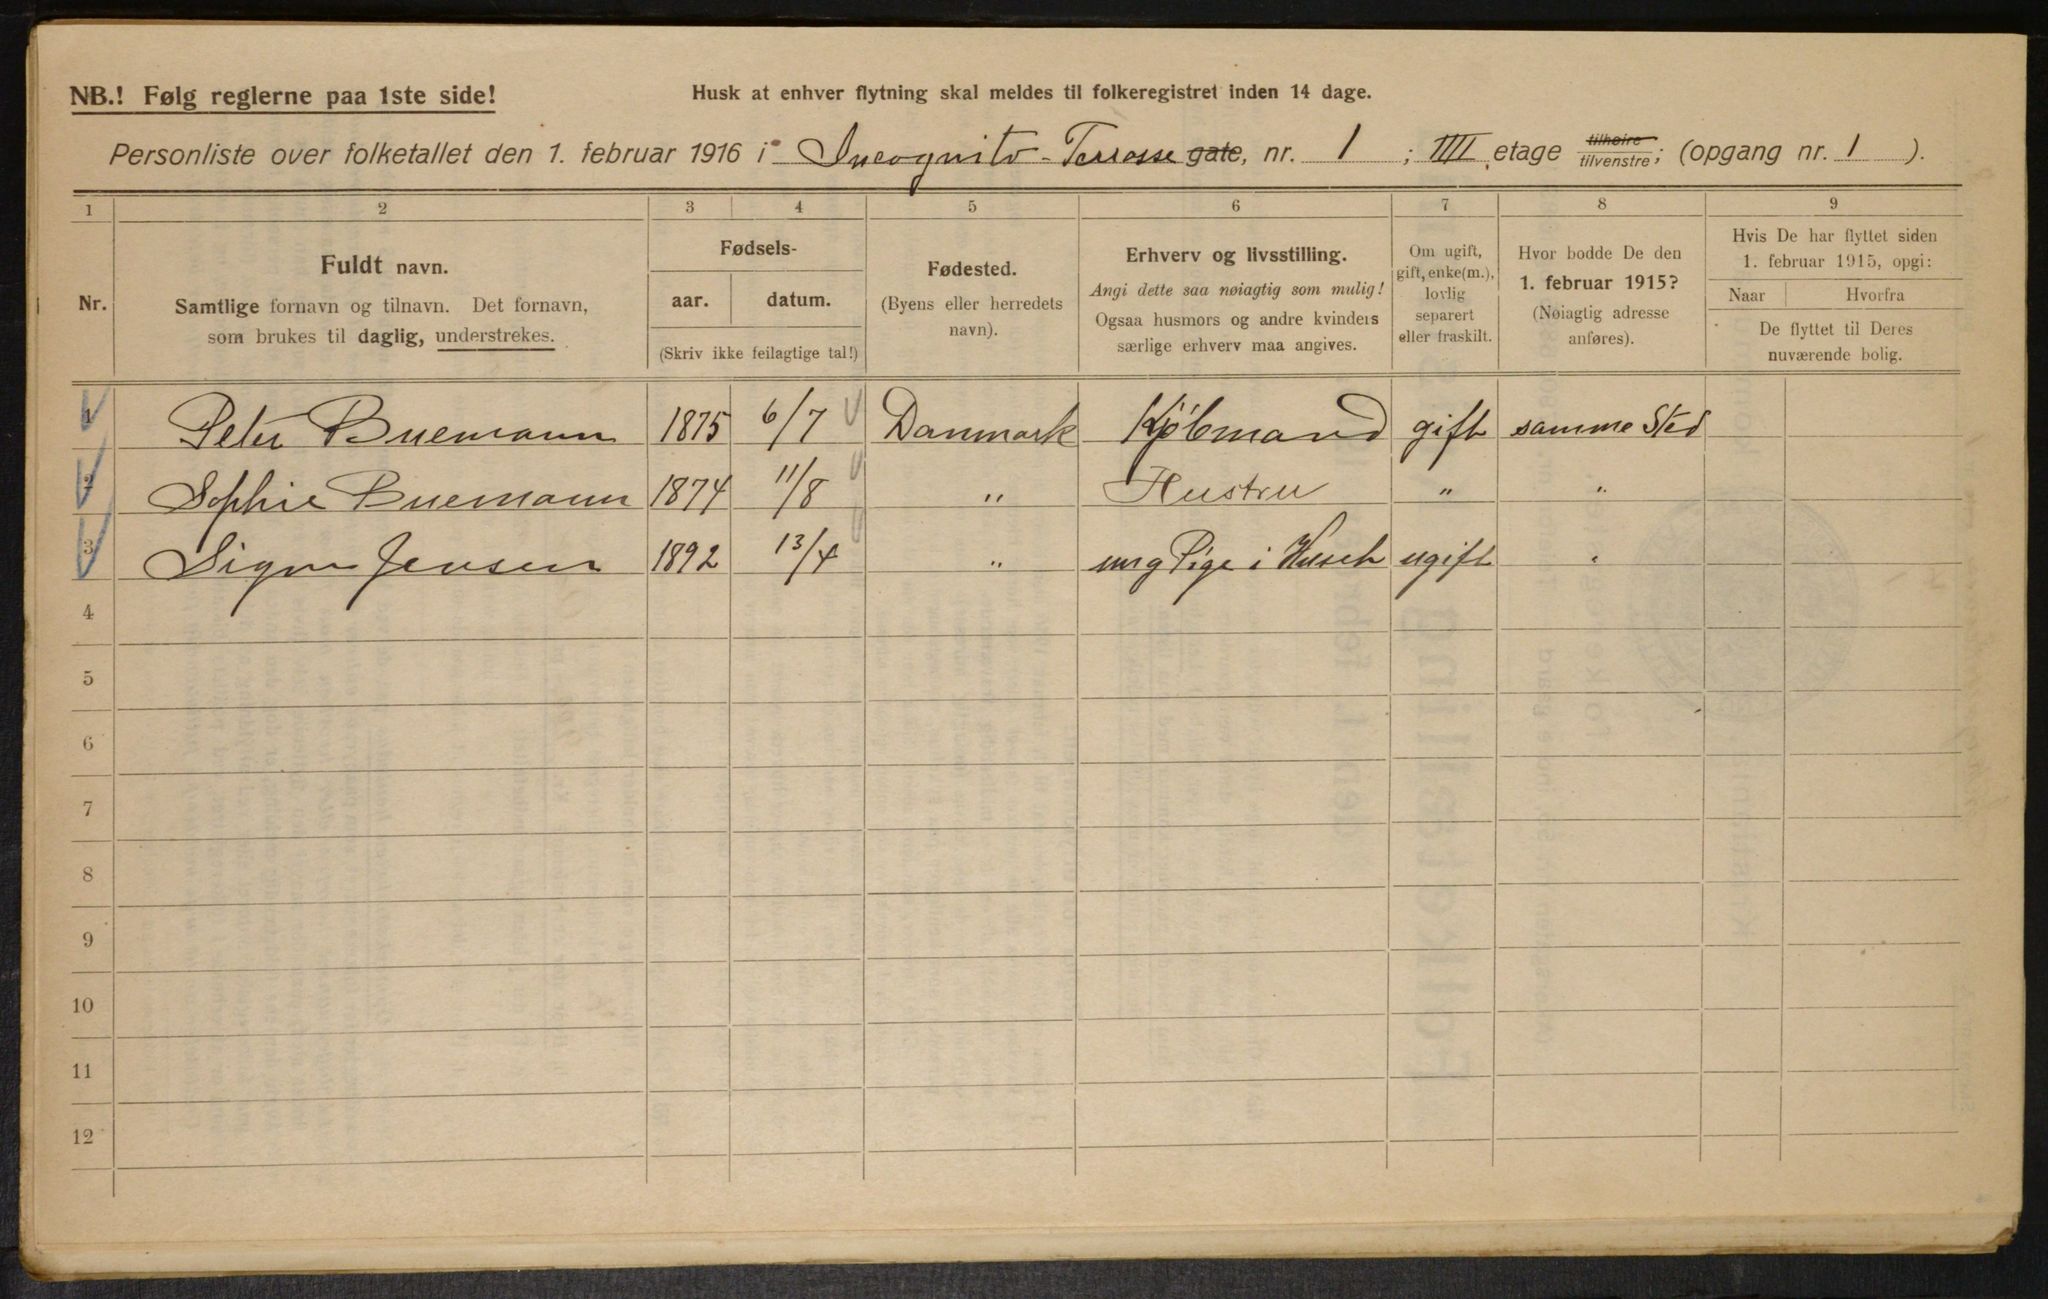 NB.! Følg reglerne paa 1ste side!
Husk at enhver flytning skal meldes til folkeregistret inden 14 dage.
Personliste over folketallet den 1. februar 1916 i Incognito-Terrasse gate, nr. 1; IIII etage tilhøire tilvenstre; (opgang nr. 1).
1 2 3 4 5 6 7 8 9
Nr.
Fuldt navn.
Samtlige fornavn og tilnavn. Det fornavn,
som brukes til daglig, understrekes.
Fødsels-
aar. datum.
(Skriv ikke feilagtige tal!)
Fødested.
(Byens eller herredets
navn).
Erhverv og livsstilling.
Angi dette saa nøiagtig som mulig!
Ogsaa husmors og andre kvinders
særlige erhverv maa angives.
Om ugift,
gift, enke(m.),
lovlig
separert
eller fraskilt.
Hvor bodde De den
1. februar 1915?
(Nøiagtig adresse
anføres).
Hvis De har flyttet siden
1. februar 1915, opgi:
Naar Hvorfra
De flyttet til Deres
nuværende bolig.
1 Peter Buemann 1875 6/7 Danmark Kjøbmand gift samme Sted
2 Sophie Buemann 1874 11/8 " Hustru " "
3 Signe Jensen 1892 13/4 " ung Pige i Huset ugift "
4
5
6
7
8
9
10
11
12